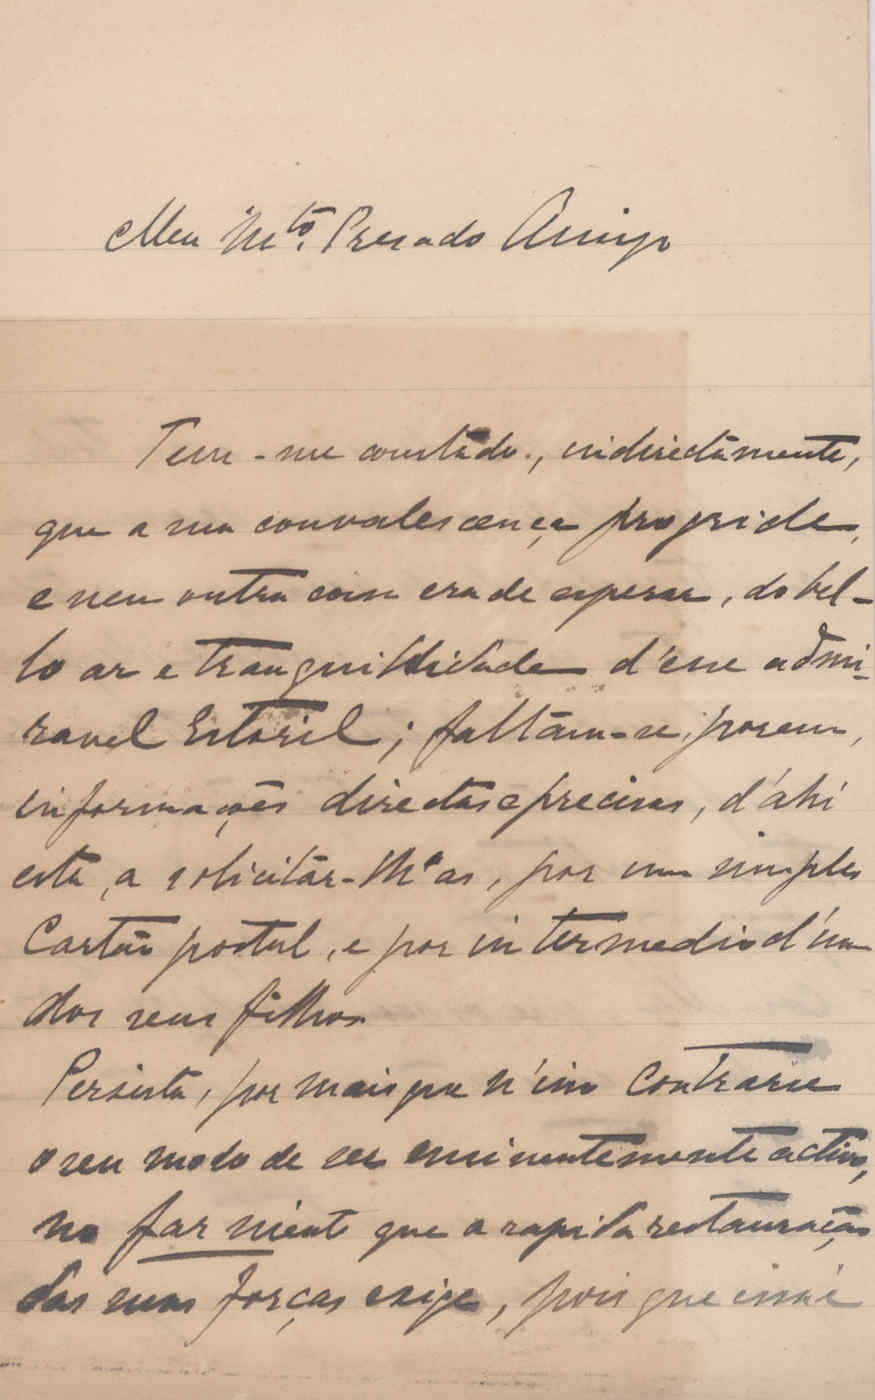 Meu Mto. Presado Amigo
Tem-me constado, indirectamente,
que a sua convalescença progride,
e nem outra coisa era de esperar, do bel-
lo ar e tranquillidade d'esse admi-
ravel Estoril; faltam-me, porem,
informações directas e precisas, d'ahi
esta, a solicitar-lh'as, por um simples
Cartão postal, e por intermedio d'um
dos seus filhos.
Persista, por mais que n'isso contrarie
o seu modo de ser eminentemente activo,
no far niente que a rapida restauração
das suas forças exige, pois que essa é